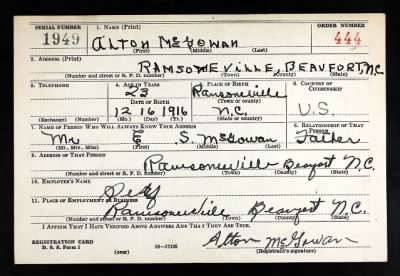 SERIAL NUMBER 1. NAME (Print) ORDER NUMBER
1949 ALTON McGOWAN 444
(First) (Middle) (Last)
2. ADDRESS (Print)
RANSOMEVILLE, BEAUFORT, N.C.
(Number and street or R. F. D. number) (Town) (County) (State)
3. TELEPHONE 4. AGE IN YEARS 5. PLACE OF BIRTH 6. COUNTRY OF CITIZENSHIP
23 Ransomeville
DATE OF BIRTH (Town or county)
12 16 1916 N.C. U.S.
(Exchange) (Number) (Mo.) (Day) (Yr.) (State or country)
7. NAME OF PERSON WHO WILL ALWAYS KNOW YOUR ADDRESS 8. RELATIONSHIP OF THAT PERSON
Mr E S. McGowan Father
(Mr., Mrs., Miss) (First) (Middle) (Last)
9. ADDRESS OF THAT PERSON
Ransomeville Beaufort N.C.
(Number and street or R. F. D. number) (Town) (County) (State)
10. EMPLOYER'S NAME
Self
11. PLACE OF EMPLOYMENT OR BUSINESS
Ransomeville Beaufort N.C.
(Number and street or R. F. D. number) (Town) (County) (State)
I AFFIRM THAT I HAVE VERIFIED ABOVE ANSWERS AND THAT THEY ARE TRUE.
Alton McGowan
REGISTRATION CARD
D. S. S. Form 1 (over) 16-17105 (Registrant's signature)